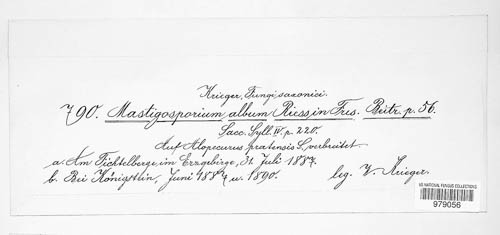 Krieger, Fungi saxonici.
790. Mastigosporium album Riess in Fres. Beitr. p. 56.
Sacc. Syll. IV. p. 220.
Auf Alopecurus pratensis L. verbreitet
a. Am Fichtelberge im Erzgebirge, 31. Juli 1887.
b. Bei Königstein, Juni 1887 u. 1890. leg. W. Krieger.
US NATIONAL FUNGUS COLLECTIONS
979056